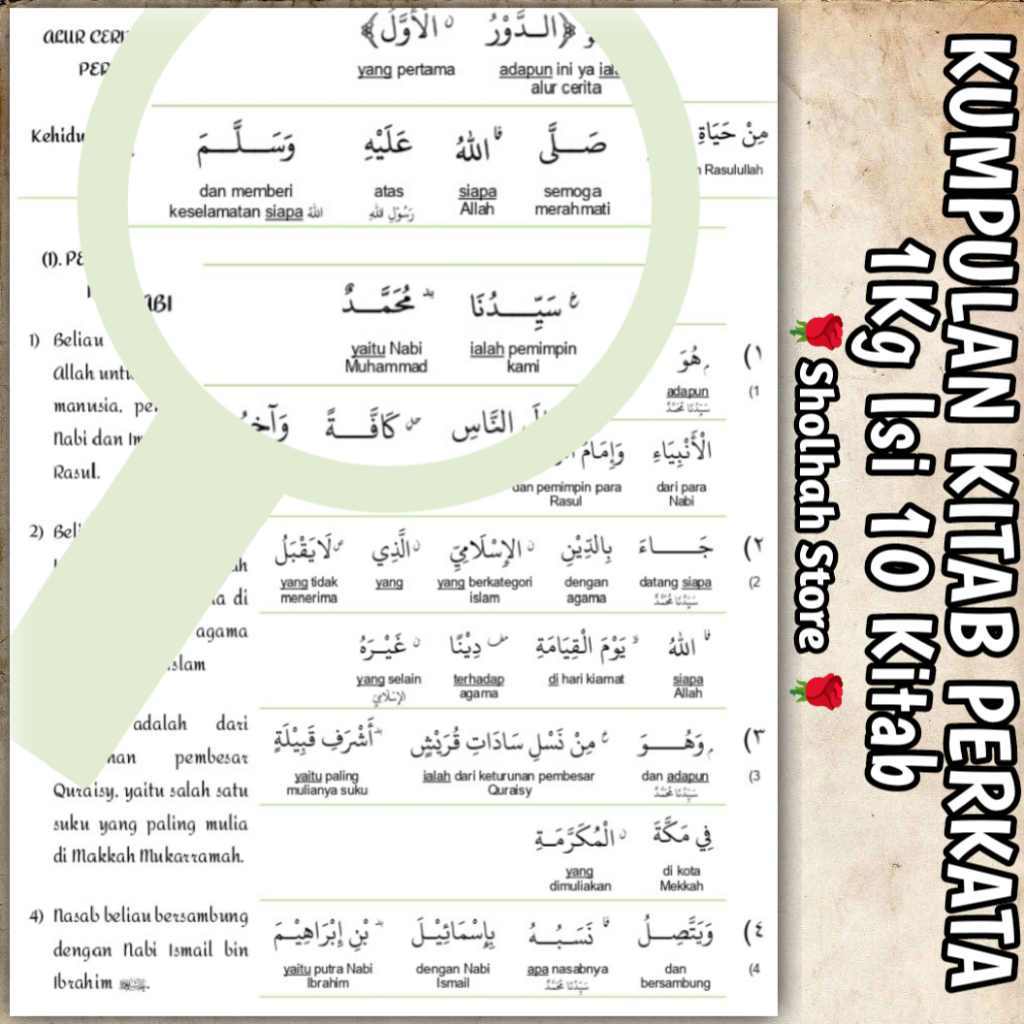 ALUR CERI
PER
Kehidu
(1). PE
ABI
1) Beliau
Allah untu
manusia, pe
Nabi dan Im
Rasul.
2) Beli
ah
a di
agama
slam
adalah dari
nan pembesar
Quraisy, yaitu salah satu
suku yang paling mulia
di Makkah Mukarramah.
4) Nasab beliau bersambung
dengan Nabi Ismail bin
Ibrahim
﴿الــدَّوْرُ الْأَوَّلُ﴾
adapun ini ya ial
alur cerita
yang pertama
مِنْ حَيَاةِ
Rasulullah
صَــلَّى اللهُ عَلَيْهِ وَسَــلَّــمَ
semoga
merahmati
siapa
Allah
atas
رَسُوْلِ اللهِ
dan memberi
keselamatan siapa الله
١) هُوَ سَيِّــــدُنَا مُحَمَّــدٌ
(1
adapun
سَيِّدُنَا مُحَمَّدٌ
ialah pemimpin
kami
yaitu Nabi
Muhammad
النَّاسِ كَافَّــــةً وَآخِ
الْأَنْبِيَاءِ وَإِمَامُ
dari para
Nabi
dan pemimpin para
Rasul
٢) جَــــــاءَ بِالدِّيْنِ الْإِسْلَامِيِّ الَّذِي لَايَقْبَلُ
(2
datang siapa
سَيِّدُنَا مُحَمَّدٌ
dengan
agama
yang berkategori
islam
yang
yang tidak
menerima
اللهُ يَوْمَ الْقِيَامَةِ دِيْنًا غَيْــرَهُ
siapa
Allah
di hari kiamat
terhadap
agama
yang selain
الإِسْلَامِيّ
٣) وَهُـــــوَ مِنْ نَسْلِ سَادَاتِ قُرَيْشٍ أَشْرَفِ قَبِيْلَةٍ
(3
dan adapun
سَيِّدُنَا مُحَمَّدٌ
ialah dari keturunan pembesar
Quraisy
yaitu paling
mulianya suku
فِي مَكَّةَ الْمُكَرَّمَــةِ
di kota
Mekkah
yang
dimuliakan
٤) وَيَتَّصِــلُ نَسَبُـــهُ بِإِسْمَائِيْــلَ بْنِ إِبْرَاهِيْــمَ
(4
dan
bersambung
apa nasabnya
سَيِّدُنَا مُحَمَّدٌ
dengan Nabi
Ismail
yaitu putra Nabi
Ibrahim
KUMPULAN KITAB PERKATA
1Kg Isi 10 Kitab
🌹 Sholhah Store 🌹